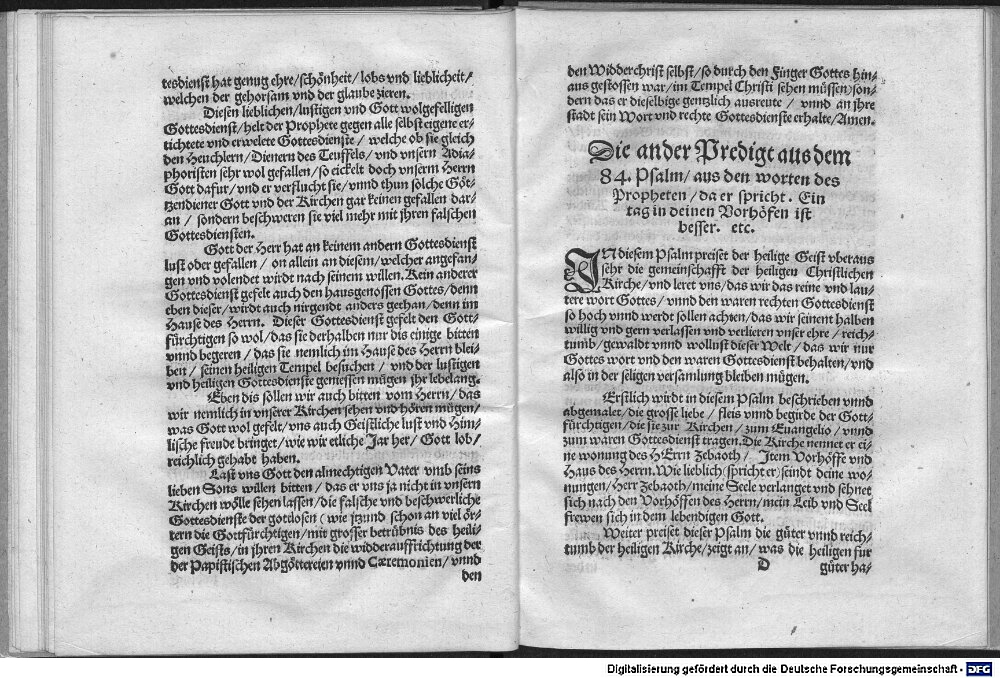 tesdienst hat genug ehre/schönheit/ lobs vnd lieblicheit/
welchen der gehorsam vnd der glaube zieren.
Diesen lieblichen/lustigen vnd Gott wolgefelligen
Gottesdienst/helt der Prophete gegen alle selbst eigene er-
tichtete vnd erwelete Gottesdienste / welche ob sie gleich
den Heuchlern/Dienern des Teuffels/vnd vnsern Adia-
phoristen sehr wol gefallen/so eickelt doch vnserm Herrn
Gott dafur/vnd er verflucht sie/vnnd thun solche Göt-
tzendiener Gott vnd der Kirchen gar keinen gefallen dar-
an / sondern beschweren sie viel mehr mit jhren falschen
Gottesdiensten.
Gott der Herr hat an keinem andern Gottesdienst
lust oder gefallen / on allein an diesem/welcher angefan-
gen vnd volendet wirdt nach seinem willen. Kein anderer
Gottesdienst gefelt auch den hausgenossen Gottes/denn
eben dieser/wirdt auch nirgendt anders gethan/denn im
Hause des Herrn. Dieser Gottesdienst gefelt den Gott-
fürchtigen so wol/das sie derhalben nur dis einige bitten
vnnd begeren / das sie nemlich im Hause des Herrn blei-
ben / seinen heiligen Tempel besuchen / vnd der lustigen
vnd heiligen Gottesdienste geniessen mügen jhr lebelang.
Eben dis söllen wir auch bitten vom Herrn/das
wir nemlich in vnserer Kirchen sehen vnd hören mügen/
was Gott wol gefelt/vns auch Geistliche lust vnd Him-
lische freude bringet/wie wir etliche Jar her/ Gott lob/
reichlich gehabt haben.
Last vns Gott den almechtigen Vater vmb seins
lieben Sons willen bitten/das er vns ja nicht in vnsern
Kirchen wölle sehen lassen/die falsche vnd beschwerliche
Gottesdienste der gotlosen (wie jtzund schon an viel ör-
tern die Gottfürchtigen/mit grosser betrübnis des heili-
gen Geists/in jhren Kirchen die widderauffrichtung der
der Papistischen Abgöttereien vnnd Cæremonien/vnnd
den
den Widderchrist selbst/so durch den Finger Gottes hin-
aus gestossen war/im Tempel Christi sehen müssen)son-
dern das er dieselbige gentzlich ausreute / vnnd an jhre
stadt sein Wort vnd rechte Gottesdienste erhalte/Amen.
Die ander Predigt aus dem
84. Psalm/ aus den worten des
Propheten/da er spricht. Ein
tag in deinen Vorhöfen ist
besser. etc.
IN diesem Psalm preiset der heilige Geist vberaus
sehr die gemeinschafft der heiligen Christlichen
Kirche/vnd leret vns/das wir das reine vnd lau-
tere wort Gottes / vnnd den waren rechten Gottesdienst
so hoch vnnd werdt sollen achten/das wir seinent halben
willig vnd gern verlassen vnd verlieren vnser ehre / reich-
tumb/gewaldt vnnd wollust dieser Welt / das wir nur
Gottes wort vnd den waren Gottesdienst behalten/vnd
also in der seligen versamlung bleiben mügen.
Erstlich wirdt in diesem Psalm beschrieben vnnd
abgemalet/die grosse liebe / fleis vnnd begirde der Gott-
fürchtigen/die sie zur Kirchen / zum Euangelio / vnnd
zum waren Gottesdienst tragen. Die Kirche nennet er ei-
ne wonung des HErrn Zebaoth / Item Vorhöffe vnd
Haus des Herrn. Wie lieblich (spricht er) seindt deine wo-
nungen/Herr Zebaoth/meine Seele verlanget vnd sehnet
sich nach den Vorhöffen des Herrn/mein Leib vnd Seel
frewen sich in dem lebendigen Gott.
Weiter preiset dieser Psalm die güter vnnd reich-
tumb der heiligen Kirche/zeigt an/ was die heiligen für
D güter ha-
Digitalisierung gefördert durch die Deutsche Forschungsgemeinschaft - DFG